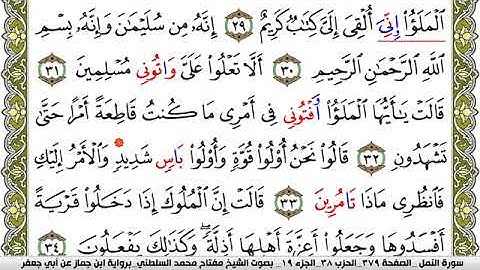 الْمَلَؤُاْ إِنِّيَ أُلْقِيَ إِلَيَّ كِتَٰبٌ كَرِيمٌ ٢٩ إِنَّهُۥ مِن سُلَيْمَٰنَ وَإِنَّهُۥ بِسْمِ
اللَّهِ الرَّحْمَٰنِ الرَّحِيمِ ٣٠ أَلَّا تَعْلُواْ عَلَيَّ وَاتُونِي مُسْلِمِينَ ٣١
قَالَتْ يَٰأَيُّهَا الْمَلَؤُاْ أَفْتُونِي فِي أَمْرِي مَا كُنتُ قَاطِعَةً أَمْرًا حَتَّىٰ
تَشْهَدُونِ ٣٢ قَالُواْ نَحْنُ أُوْلُواْ قُوَّةٍ وَأُوْلُواْ بَاسٍ شَدِيدٍ وَالْأَمْرُ إِلَيْكِ
فَانظُرِي مَاذَا تَامُرِينَ ٣٣ قَالَتْ إِنَّ الْمُلُوكَ إِذَا دَخَلُواْ قَرْيَةً
أَفْسَدُوهَا وَجَعَلُواْ أَعِزَّةَ أَهْلِهَا أَذِلَّةً ۖ وَكَذَٰلِكَ يَفْعَلُونَ ٣٤
سورة النمل _الصفحة ٣٧٩_ الحزب ٣٨_ الجزء ١٩_ بصوت الشيخ مفتاح محمد السلطني_ برواية ابن جماز عن أبي جعفر